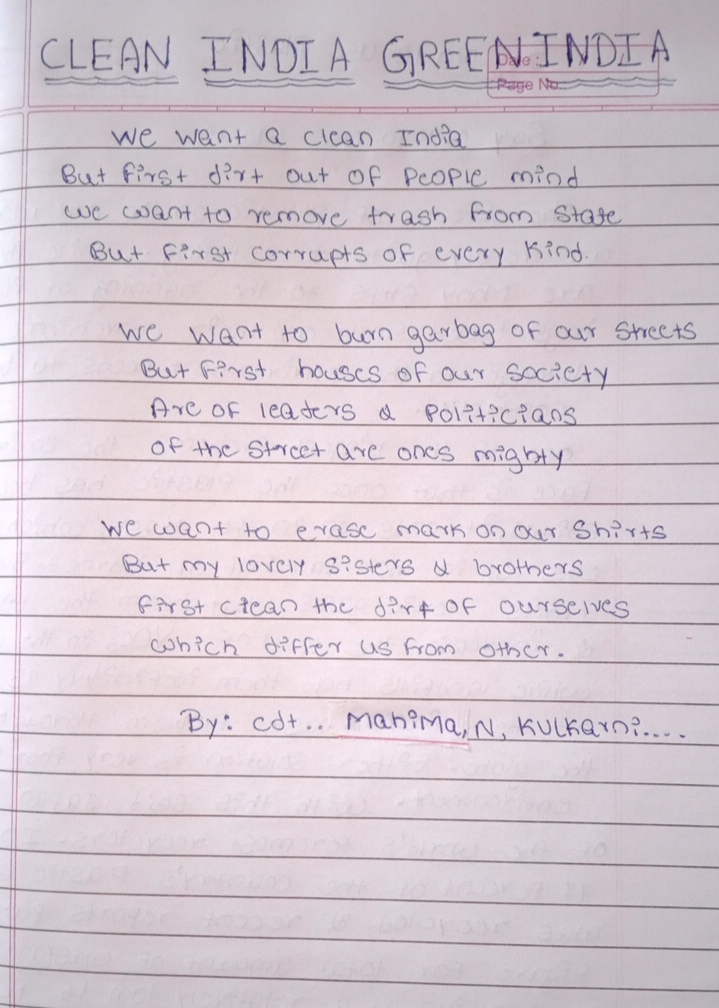 CLEAN INDIA GREEN INDIA
Date :
Page No.
We want a clean India
But first dirt out of People mind
we want to remove trash from state
But first corrupts of every kind.
We want to burn garbag of our streets
But first houses of our society
Are of leaders & Politicians
of the street are ones mighty
We want to erase mark on our Shirts
But my lovely sisters & brothers
first clean the dirt of ourselves
which differ us from other.
By: cdt.. Mahima, N, Kulkarni....